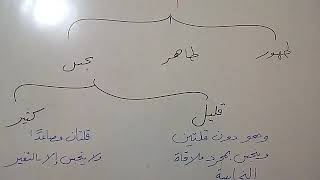 طهور طاهر نجس
قليل كثير
وهو دون قلتين قلتان فصاعدًا
وينجس بمجرد ملاقاة ولا ينجس إلا بالتغير
النجاسة